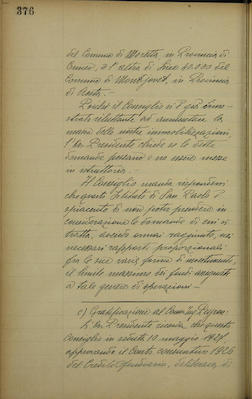 376
del Comune di Moretta, in Provincia di
Cuneo, e l'altra di Lire 40.000 dal
Comune di Montjovet, in Provincia
di Aosta. -
Poiché il Consiglio è già dimo-
strato riluttante ad aumentare la
massa delle nostre immobilizzazioni
l'on. Presidente chiede se le dette
domande possano o no essere messe
in istruttoria. -
Il Consiglio manda rispondersi
che questo Istituto di San Paolo è
spiacente di non poter prendere in
considerazione le domande di cui si
tratta, avendo ormai raggiunto, nei
necessari rapporti proporzionali
fra le sue varie forme di investimenti,
il limite massimo dei fondi assegnati
a tale genere di operazioni. -
c) Gratificazione al
L'on. Presidente che questo
Consiglio in seduta 10 maggio 1927
approvando il Conto consuntivo 1926
del Credito Fondiario, deliberava di